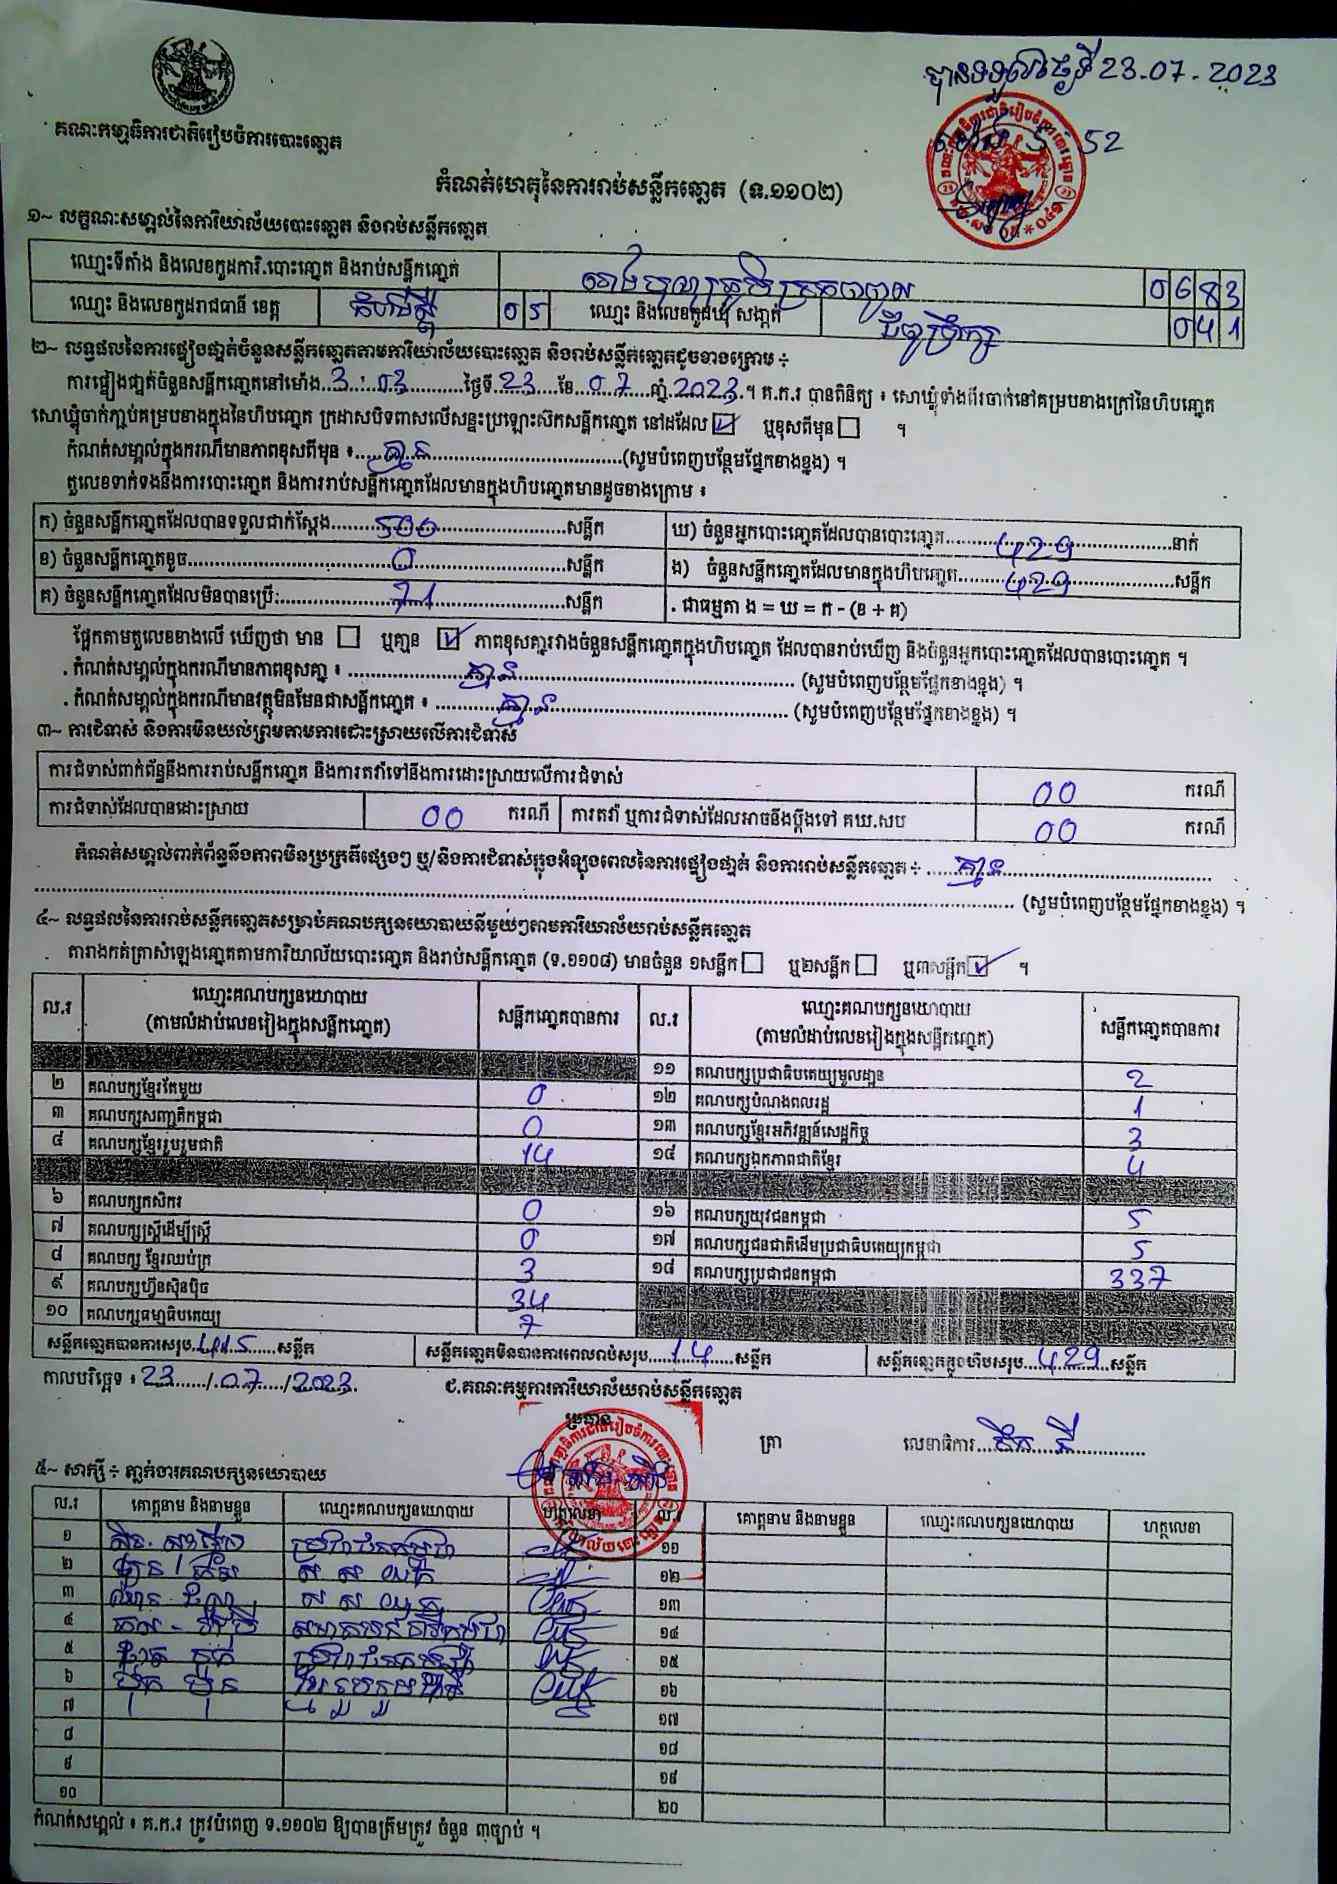 បានទទួលថ្ងៃទី 23.07.2023
52
គណៈកម្មាធិការជាតិរៀបចំការបោះឆ្នោត
កំណត់ហេតុនៃការរាប់សន្លឹកឆ្នោត (ទ.១១០២)
១~ លក្ខណៈសម្គាល់នៃការិយាល័យបោះឆ្នោត និងរាប់សន្លឹកឆ្នោត
ឈ្មោះទីតាំង និងលេខកូដការិ.បោះឆ្នោត និងរាប់សន្លឹកឆ្នោត 0683
ឈ្មោះ និងលេខកូដរាជធានី ខេត្ត កំពង់ស្ពឺ 05 ឈ្មោះ និងលេខកូដឃុំ សង្កាត់ 041
២~ លទ្ធផលនៃការផ្ទៀងផ្ទាត់ចំនួនសន្លឹកឆ្នោតតាមការិយាល័យបោះឆ្នោត និងរាប់សន្លឹកឆ្នោតដូចខាងក្រោម ÷
ការផ្ទៀងផ្ទាត់ចំនួនសន្លឹកឆ្នោតនៅម៉ោង 3:03 ថ្ងៃទី 23 ខែ 07 ឆ្នាំ 2023 ។ គ.ក.រ បានពិនិត្យ ៖ សោឃ្លុំទាំងពីរចាក់នៅគម្របខាងក្រៅនៃហិបឆ្នោត
សោឃ្លុំចាក់ភ្ជាប់គម្របខាងក្នុងនៃហិបឆ្នោត ក្រដាសបិទពាសលើសន្ទះប្រឡោះស៊កសន្លឹកឆ្នោត នៅដដែល ☑ ឬខុសពីមុន ☐ ។
កំណត់សម្គាល់ក្នុងករណីមានភាពខុសពីមុន ៖ គ្មាន (សូមបំពេញបន្ថែមផ្នែកខាងខ្នង) ។
តួលេខទាក់ទងនឹងការបោះឆ្នោត និងការរាប់សន្លឹកឆ្នោតដែលមានក្នុងហិបឆ្នោតមានដូចខាងក្រោម ៖
ក) ចំនួនសន្លឹកឆ្នោតដែលបានទទួលជាក់ស្តែង 500 សន្លឹក ឃ) ចំនួនអ្នកបោះឆ្នោតដែលបានបោះឆ្នោត 429 នាក់
ខ) ចំនួនសន្លឹកឆ្នោតខូច 0 សន្លឹក ង) ចំនួនសន្លឹកឆ្នោតដែលមានក្នុងហិបឆ្នោត 429 សន្លឹក
គ) ចំនួនសន្លឹកឆ្នោតដែលមិនបានប្រើ: 71 សន្លឹក . ជាធម្មតា ង = ឃ = ក - (ខ + គ)
ផ្អែកតាមតួលេខខាងលើ ឃើញថា មាន ☐ ឬគ្មាន ☑ ភាពខុសគ្នារវាងចំនួនសន្លឹកឆ្នោតក្នុងហិបឆ្នោត ដែលបានរាប់ឃើញ និងចំនួនអ្នកបោះឆ្នោតដែលបានបោះឆ្នោត ។
. កំណត់សម្គាល់ក្នុងករណីមានភាពខុសគ្នា ៖ គ្មាន (សូមបំពេញបន្ថែមផ្នែកខាងខ្នង) ។
. កំណត់សម្គាល់ក្នុងករណីមានវត្ថុមិនមែនជាសន្លឹកឆ្នោត ៖ គ្មាន (សូមបំពេញបន្ថែមផ្នែកខាងខ្នង) ។
៣~ ការជំទាស់ និងការមិនយល់ព្រមតាមការដោះស្រាយលើការជំទាស់
ការជំទាស់ពាក់ព័ន្ធនឹងការរាប់សន្លឹកឆ្នោត និងការតវ៉ាទៅនឹងការដោះស្រាយលើការជំទាស់ 00 ករណី
ការជំទាស់ដែលបានដោះស្រាយ 00 ករណី ការតវ៉ា ឬការជំទាស់ដែលអាចនឹងប្តឹងទៅ គឃ.សប 00 ករណី
កំណត់សម្គាល់ពាក់ព័ន្ធនឹងភាពមិនប្រក្រតីផ្សេងៗ ឬ/និងការជំទាស់ក្នុងអំឡុងពេលនៃការផ្ទៀងផ្ទាត់ និងការរាប់សន្លឹកឆ្នោត ÷ គ្មាន
(សូមបំពេញបន្ថែមផ្នែកខាងខ្នង) ។
៤~ លទ្ធផលនៃការរាប់សន្លឹកឆ្នោតសម្រាប់គណបក្សនយោបាយនីមួយៗតាមការិយាល័យរាប់សន្លឹកឆ្នោត
តារាងកត់ត្រាសំឡេងឆ្នោតតាមការិយាល័យបោះឆ្នោត និងរាប់សន្លឹកឆ្នោត (ទ.១១០៨) មានចំនួន ១សន្លឹក ☐ ឬ២សន្លឹក ☐ ឬ៣សន្លឹក ☑ ។
ល.រ ឈ្មោះគណបក្សនយោបាយ (តាមលំដាប់លេខរៀងក្នុងសន្លឹកឆ្នោត) សន្លឹកឆ្នោតបានការ ល.រ ឈ្មោះគណបក្សនយោបាយ (តាមលំដាប់លេខរៀងក្នុងសន្លឹកឆ្នោត) សន្លឹកឆ្នោតបានការ
១១ គណបក្សប្រជាធិបតេយ្យមូលដ្ឋាន 2
២ គណបក្សខ្មែរតែមួយ 0 ១២ គណបក្សបំណងពលរដ្ឋ 1
៣ គណបក្សសញ្ជាតិកម្ពុជា 0 ១៣ គណបក្សខ្មែរអភិវឌ្ឍន៍សេដ្ឋកិច្ច 3
៤ គណបក្សខ្មែររួបរួមជាតិ 14 ១៤ គណបក្សឯកភាពជាតិខ្មែរ 4
៦ គណបក្សកសិករ 0 ១៦ គណបក្សយុវជនកម្ពុជា 5
៧ គណបក្សស្ត្រីដើម្បីស្ត្រី 0 ១៧ គណបក្សជនជាតិដើមប្រជាធិបតេយ្យកម្ពុជា 5
៨ គណបក្ស ខ្មែរឈប់ក្រ 3 ១៨ គណបក្សប្រជាជនកម្ពុជា 337
៩ គណបក្សហ៊្វុនស៊ិនប៉ិច 34
១០ គណបក្សធម្មាធិបតេយ្យ 7
សន្លឹកឆ្នោតបានការសរុប 415 សន្លឹក សន្លឹកឆ្នោតមិនបានការពេលរាប់សរុប 14 សន្លឹក សន្លឹកឆ្នោតក្នុងហិបសរុប 429 សន្លឹក
កាលបរិច្ឆេទ ៖ 23/07/2023 ជ.គណៈកម្មការការិយាល័យរាប់សន្លឹកឆ្នោត
ប្រធាន ត្រា លេខាធិការ
៥~ សាក្សី ÷ ភ្នាក់ងារគណបក្សនយោបាយ
ល.រ គោត្តនាម និងនាមខ្លួន ឈ្មោះគណបក្សនយោបាយ ហត្ថលេខា ល.រ គោត្តនាម និងនាមខ្លួន ឈ្មោះគណបក្សនយោបាយ ហត្ថលេខា
១ ប្រជាជនកម្ពុជា ១១
២ ស ស យ ក ១២
៣ ស ស យ ក ១៣
៤ ១៤
៥ ប្រជាជនកម្ពុជា ១៥
៦ ខ្មែររួបរួមជាតិ ១៦
៧ ១៧
៨ ១៨
៩ ១៩
១០ ២០
កំណត់សម្គាល់ ៖ គ.ក.រ ត្រូវបំពេញ ទ.១១០២ ឱ្យបានត្រឹមត្រូវ ចំនួន ៣ច្បាប់ ។